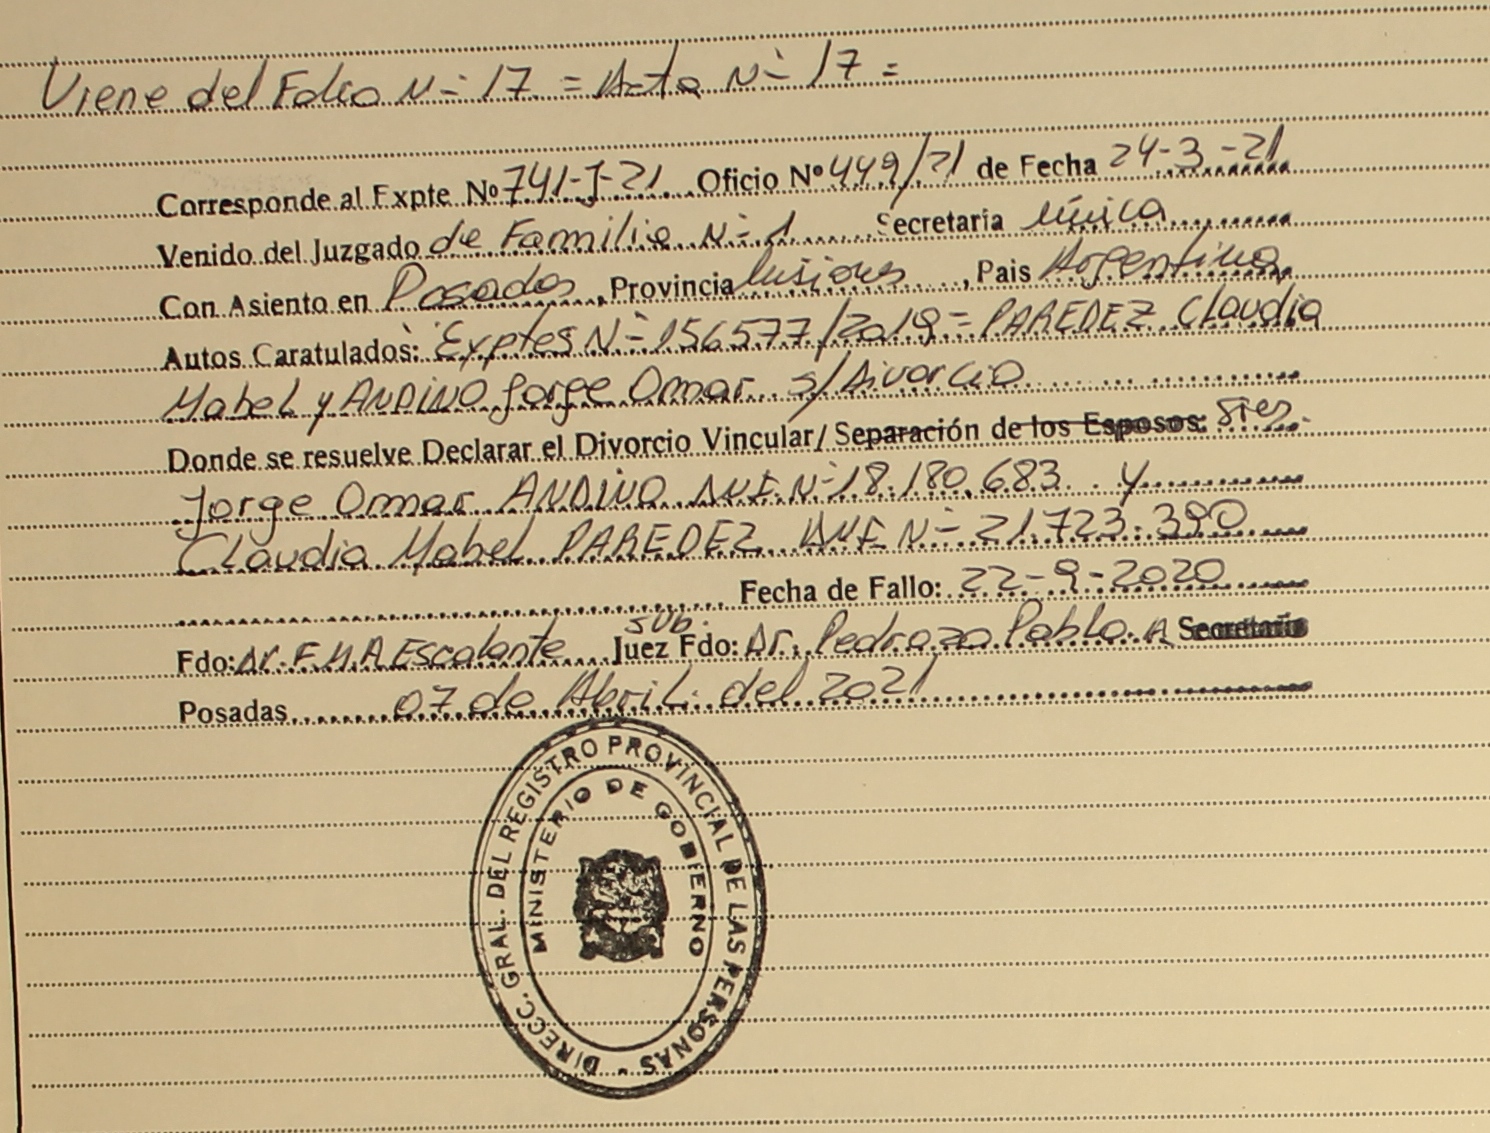 Viene del Folio N= 17. = Acta N= 17 =
Corresponde al Expte Nº 741-J-21. Oficio Nº 449/21 de Fecha 24-3-21
Venido del Juzgado de Familia N=1 Secretaría única
Con Asiento en Posadas, Provincia Misiones, Pais Argentina
Autos Caratulados: Exptes N= 156577/2019= PAREDEZ Claudia
Mabel y ANDINO Jorge Omar s/Divorcio
Donde se resuelve Declarar el Divorcio Vincular/ Separación de los Esposos: Sres.
Jorge Omar ANDINO DNI N=18.180.683. y
Claudia Mabel PAREDEZ DNI N= 21.723.390
Fecha de Fallo: 22-9-2020
sub.
Fdo: Dr. F.M.A Escalante Juez Fdo: Dr. Pedrozo Pablo. A Secretario
Posadas 07 de Abril. del 2021
DIRECC. GRAL. DEL REGISTRO PROVINCIAL DE LAS PERSONAS -
MINISTERIO DE GOBIERNO